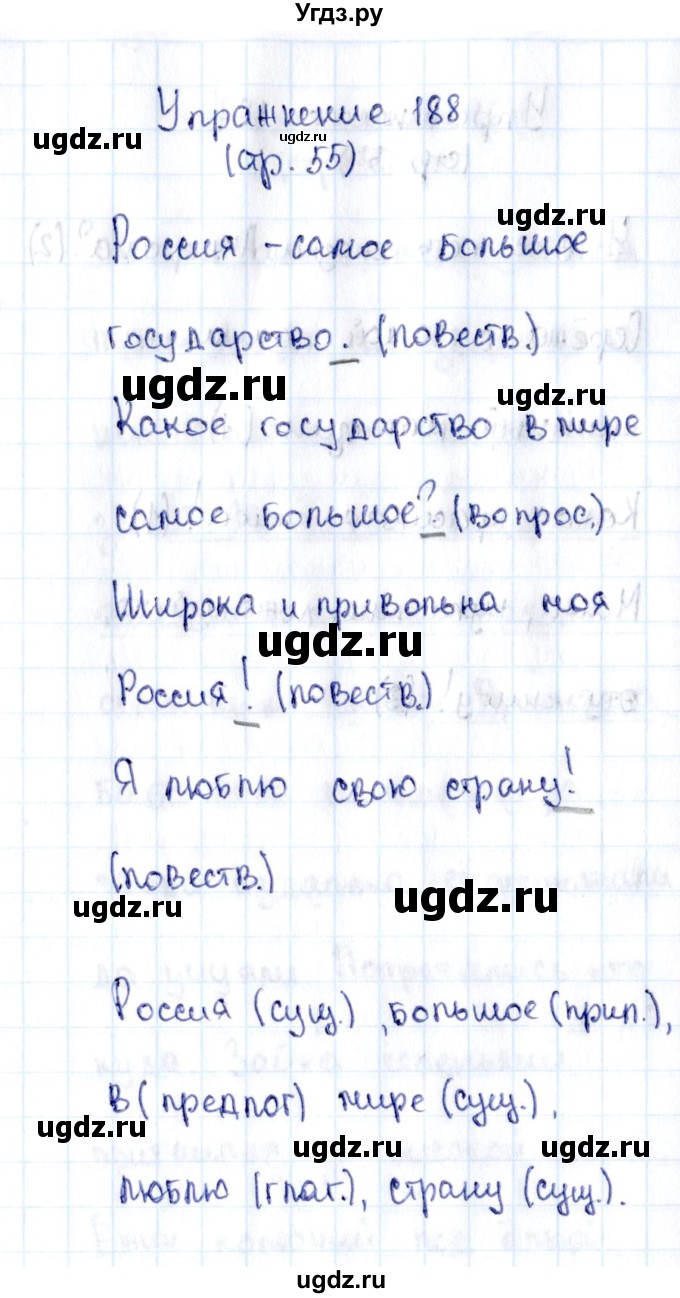 Угдз.ру
Упражнение 188
ugdz.ru
ugdz.ru
(стр. 55)
ugdz.ru
Россия - самое большое
государство. (повеств.)
ugdz.ru
Какое государство в мире
самое большое? (вопрос.)
Широка и привольна моя
ugdz.ru
Россия! (повеств.)
Я люблю свою страну!
(повеств.)
ugdz.ru
ugdz.ru
Россия (сущ.), большое (прил.),
в (предлог) мире (сущ.),
ugdz.ru
ugdz.ru
люблю (глаг.), страну (сущ.).
ugdz.ru